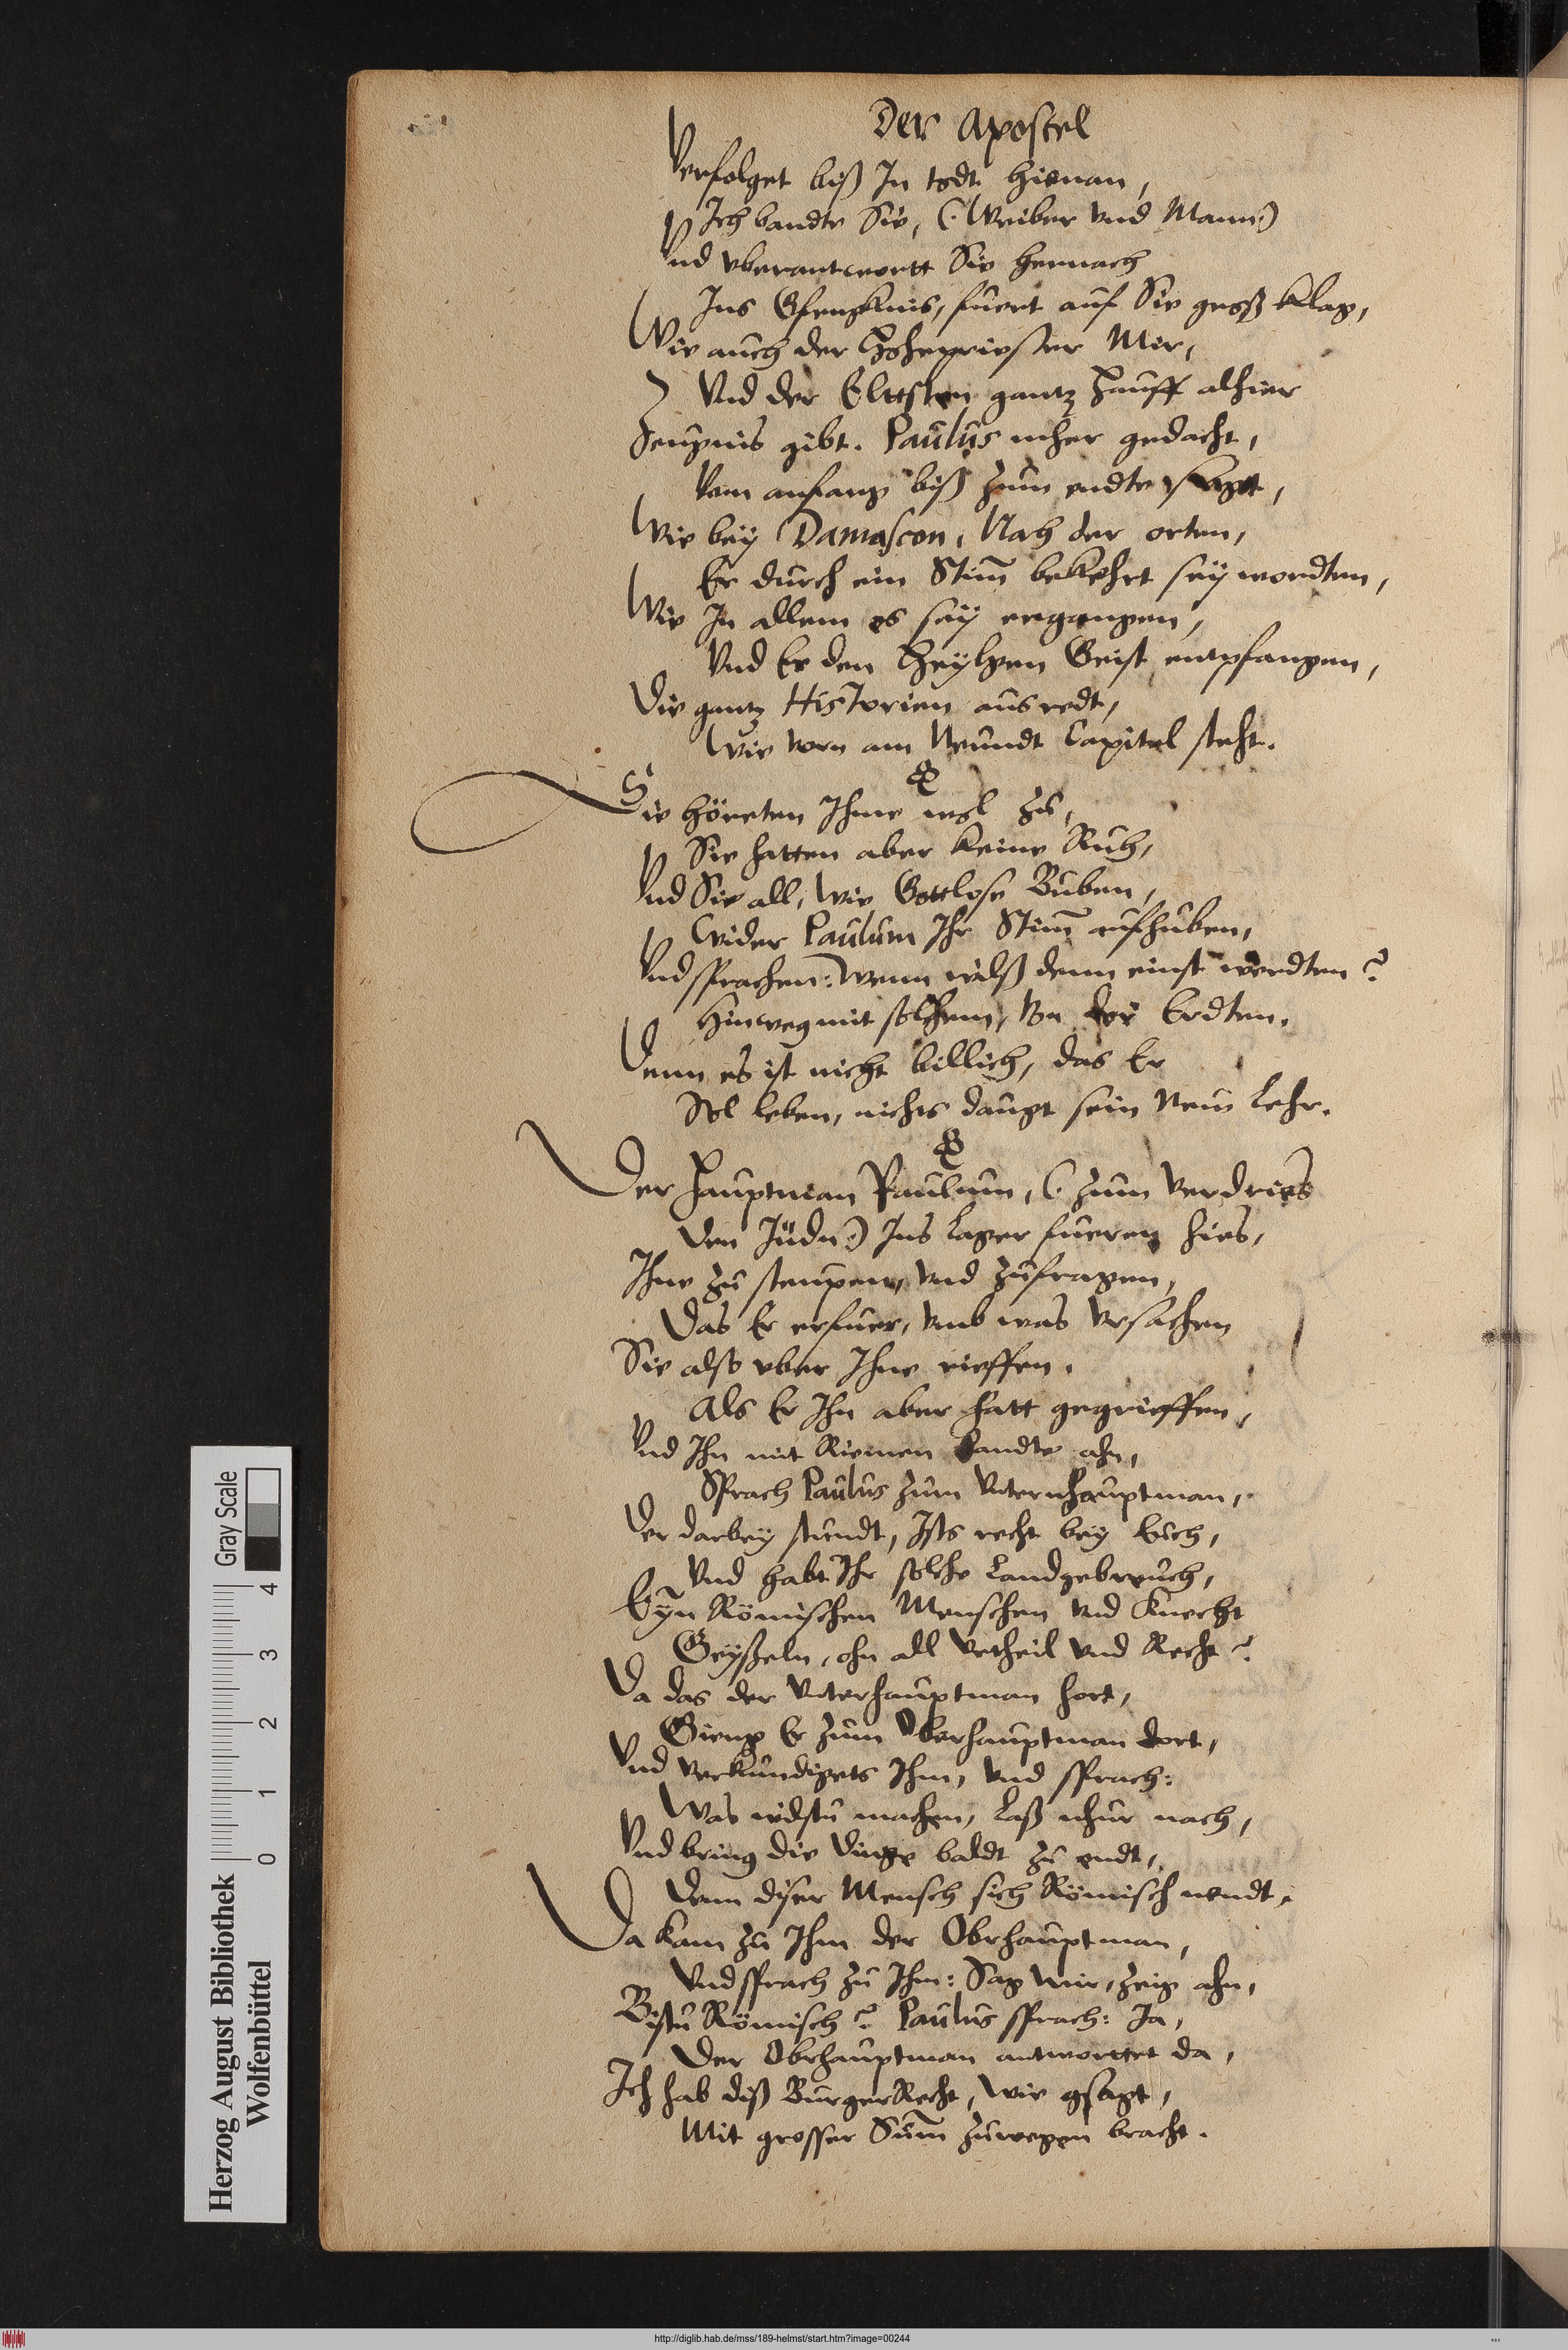 Der Apostel
Verfolget biß In todt hienan,
Ich bandte Sie, (Weiber vnd Mann)
Vnd vberantwortt Sie hernach
Ins Gfengknis, fuert auf Sie groß klag,
Wie auch der Hohepriester Mir,
Vnd der Elttsten gantz hauff alhier
Zeugnis gibt. Paulus mher gedacht,
Vom anfang biß zum endte sagt,
Wie bey Damascon, Nah der orten,
Er durch ein Stim̄ bekehrt sey wordten,
Wie In allem es sey ergangen,
Vnd Er den Heylgen Geist entpfangen,
Die gantz Historien aus redt,
Wie vorn am Neundt Capitel steht.
Sie höreten Ihme wol zu,
Sie hatten aber keine Ruh,
Vnd Sie all, wie Gottlose Buben,
Wider Paulum Ihr Stim̄ aufhuben,
Vnd sprachen: Wenn wilß denn einst werdten?
Hinweg mit solchem, Von der Erdten.
Denn es ist nicht billich, das Er
Sol leben, nichts daugt sein Neue Lehr.
Der Hauptman Paulum, (zum verdries
den Jüdn) Ins Lager fueren hies,
Ihne zu steupen, vnd zufragen,
Das Er erfuer, vmb was vrsachen
Sie also vber Ihne rieffen.
Als Er Ihn aber hatt gegrieffen,
Vnd Ihn mit Riemen bandte ahn,
Sprach Paulus zum Vnternhauptman,
Der darbey stundt, Ists recht bey Euch,
Vnd habt Ihr solche Landgebreuch,
Eyn Römischen Menschen vnd Knecht
Geyßeln, ohn all vrtheil vnd Recht?
Da das der Vnterhauptman hort,
Gieng Er zum Oberhauptman dort,
Vnd verkundigets Ihm, vnd sprach:
Was wilstu machen, laß nhur nach,
Vnd bring die dinge baldt zu endt,
Denn diser Mensch sich Römisch nendt.
Da kam zu Ihm der Obrhauptman,
Vnd sprach zu Ihm: Sag mir, zeig ahn,
Bistu Römisch? Paulus sprach: Ja,
Der Obrhauptman antworttet da,
Ich hab diß BurgerRecht, wie gsagt,
Mit grosser Sum̄ zuwegen bracht.
Herzog August Bibliothek
Wolfenbüttel
0 1 2 3 4
Gray Scale
http://diglib.hab.de/mss/189-helmst/start.htm?image=00244